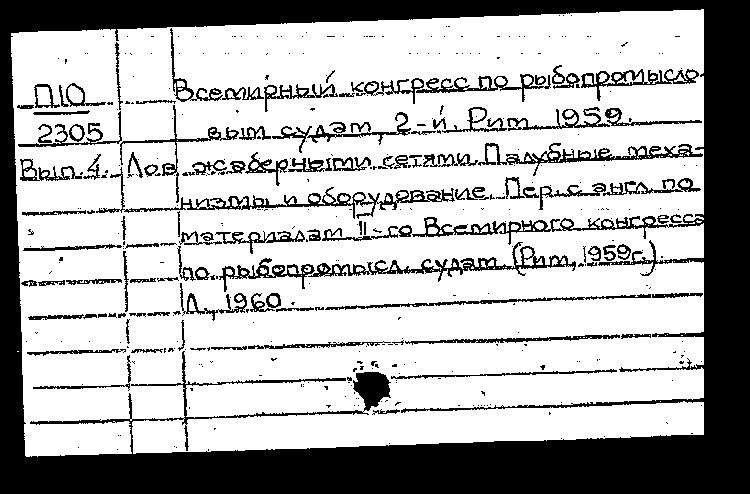 П10 Всемирный конгресс по рыбопромысло-
2305 вым судам, 2-й. Рим. 1959.
Вып. 4. Лов жаберными сетями. Палубные меха-
низмы и оборудование. Пер. с англ. по
материалам II-го Всемирного конгресса
по рыбопромысл. судам (Рим, 1959г.).
Л., 1960.